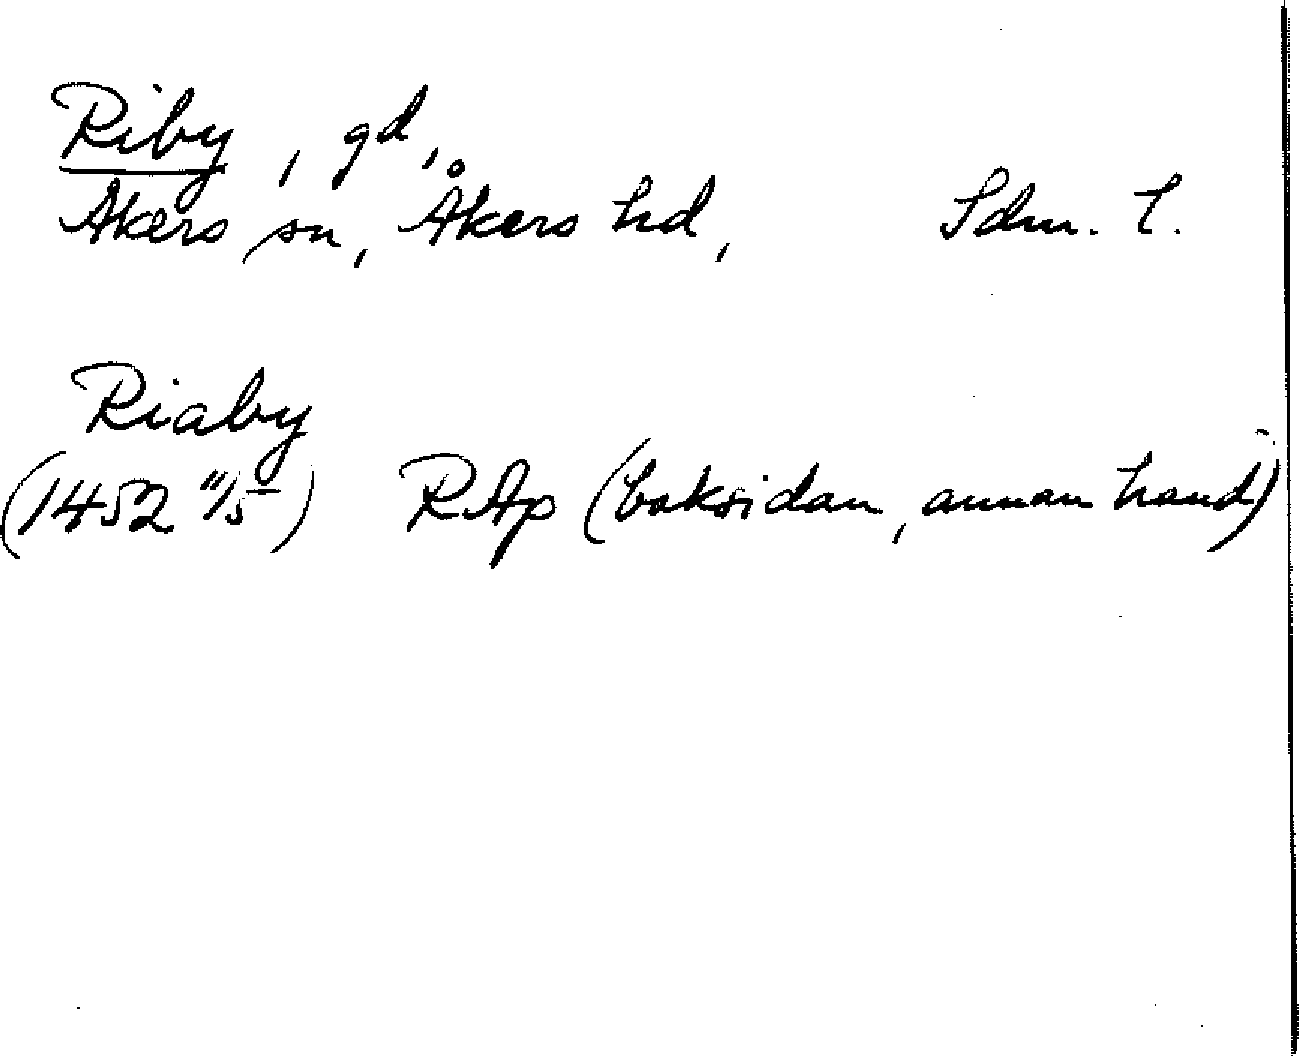 Riby, gd,
Åkers sn, Åkers hd, Sdm. l.
Riaby
(1452 11/5) RAp (baksidan, annan hand)